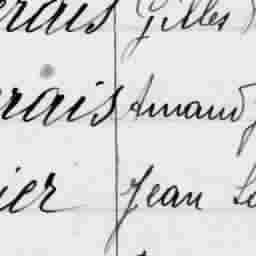 rais Gilles
rais Amand
ier Jean